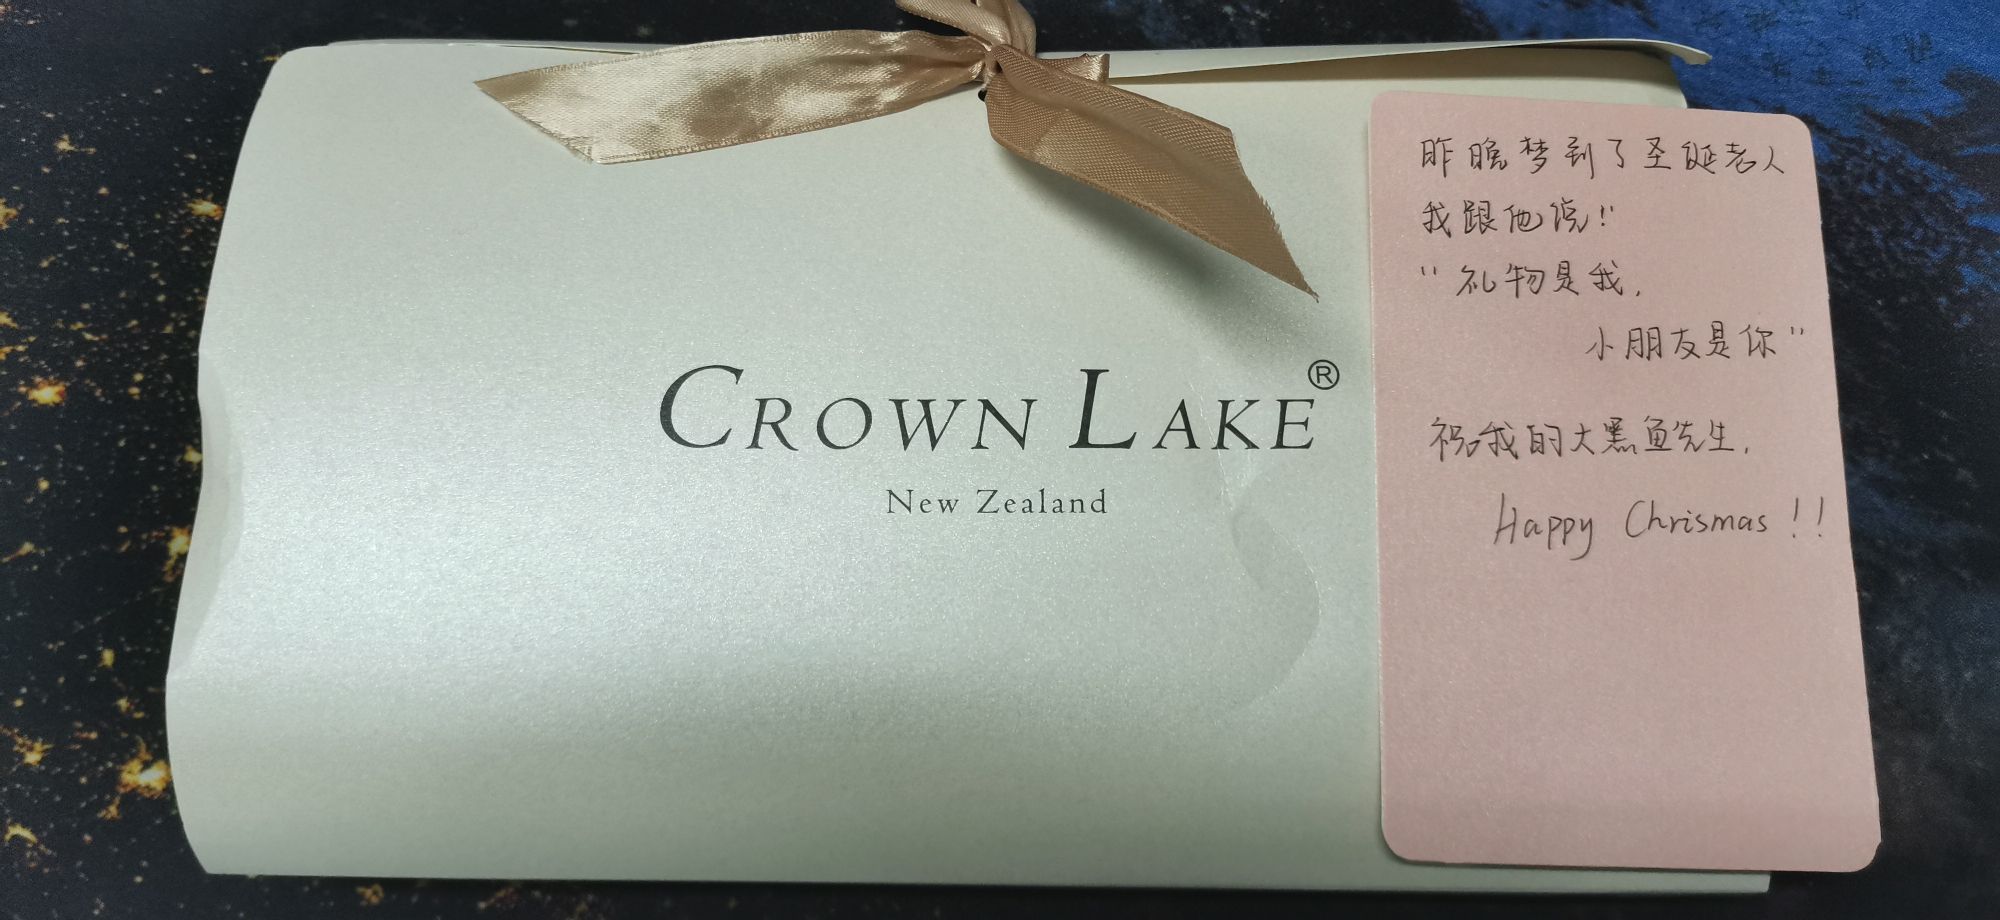 CROWN LAKE®
New Zealand
昨晚梦到了圣诞老人
我跟他说!
"礼物是我,
小朋友是你"
祝我的大黑鱼先生,
Happy Chrismas !!